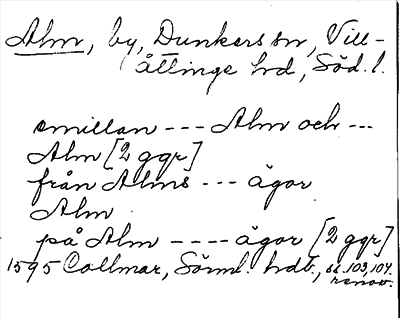 Alm, by, Dunkers sn, Vill-
åttinge hd, Söd. l.
emillan --- Alm och ---
Alm [2 ggr]
från Alms --- ägor
Alm
på Alm ---- ägor [2 ggr]
1595 Collmar, Sörml. hdl., ss. 103, 104.
renov.